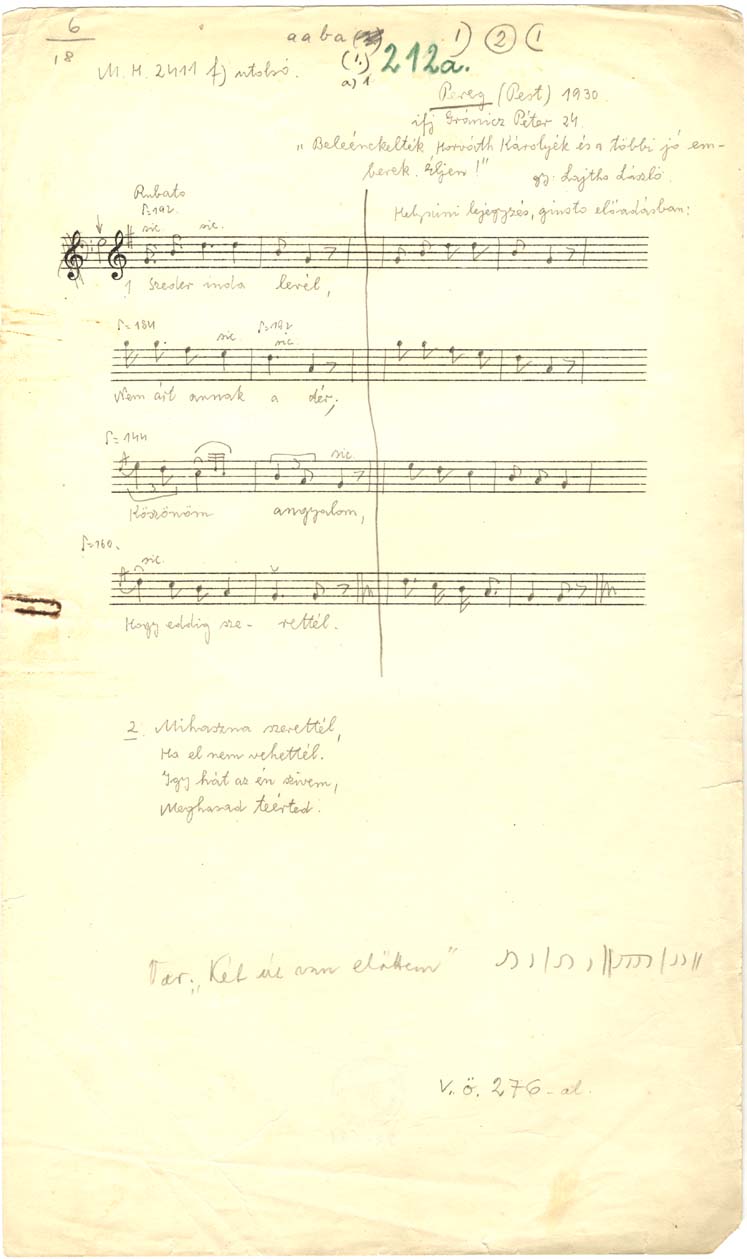 6
18
a a b a
1) 2 (1
(1.)
a) 1
212a.
M. H. 2411 f) utolsó.
Pereg (Pest) 1930
ifj Gránicz Péter 24.
"Beleénekelték Horváth Károlyék és a többi jó em-
berek. Éljen!"
gy. Lajtha László.
Rubato
♪=192.
sic. sic.
Helyszini lejegyzés, giusto előadásban:
1 Szeder inda levél,
♪=184 sic. ♪=192 sic.
Nem árt annak a dér;
♪=144 sic.
3
Köszönöm angyalom,
♪=160.
sic.
Hogy eddig sze- rettél.
2. Mihaszna szerettél,
Ha el nem vehettél.
Igy hát az én szivem,
Meghasad teérted.
Var: „Két út van előttem"
V. ö. 276-al.